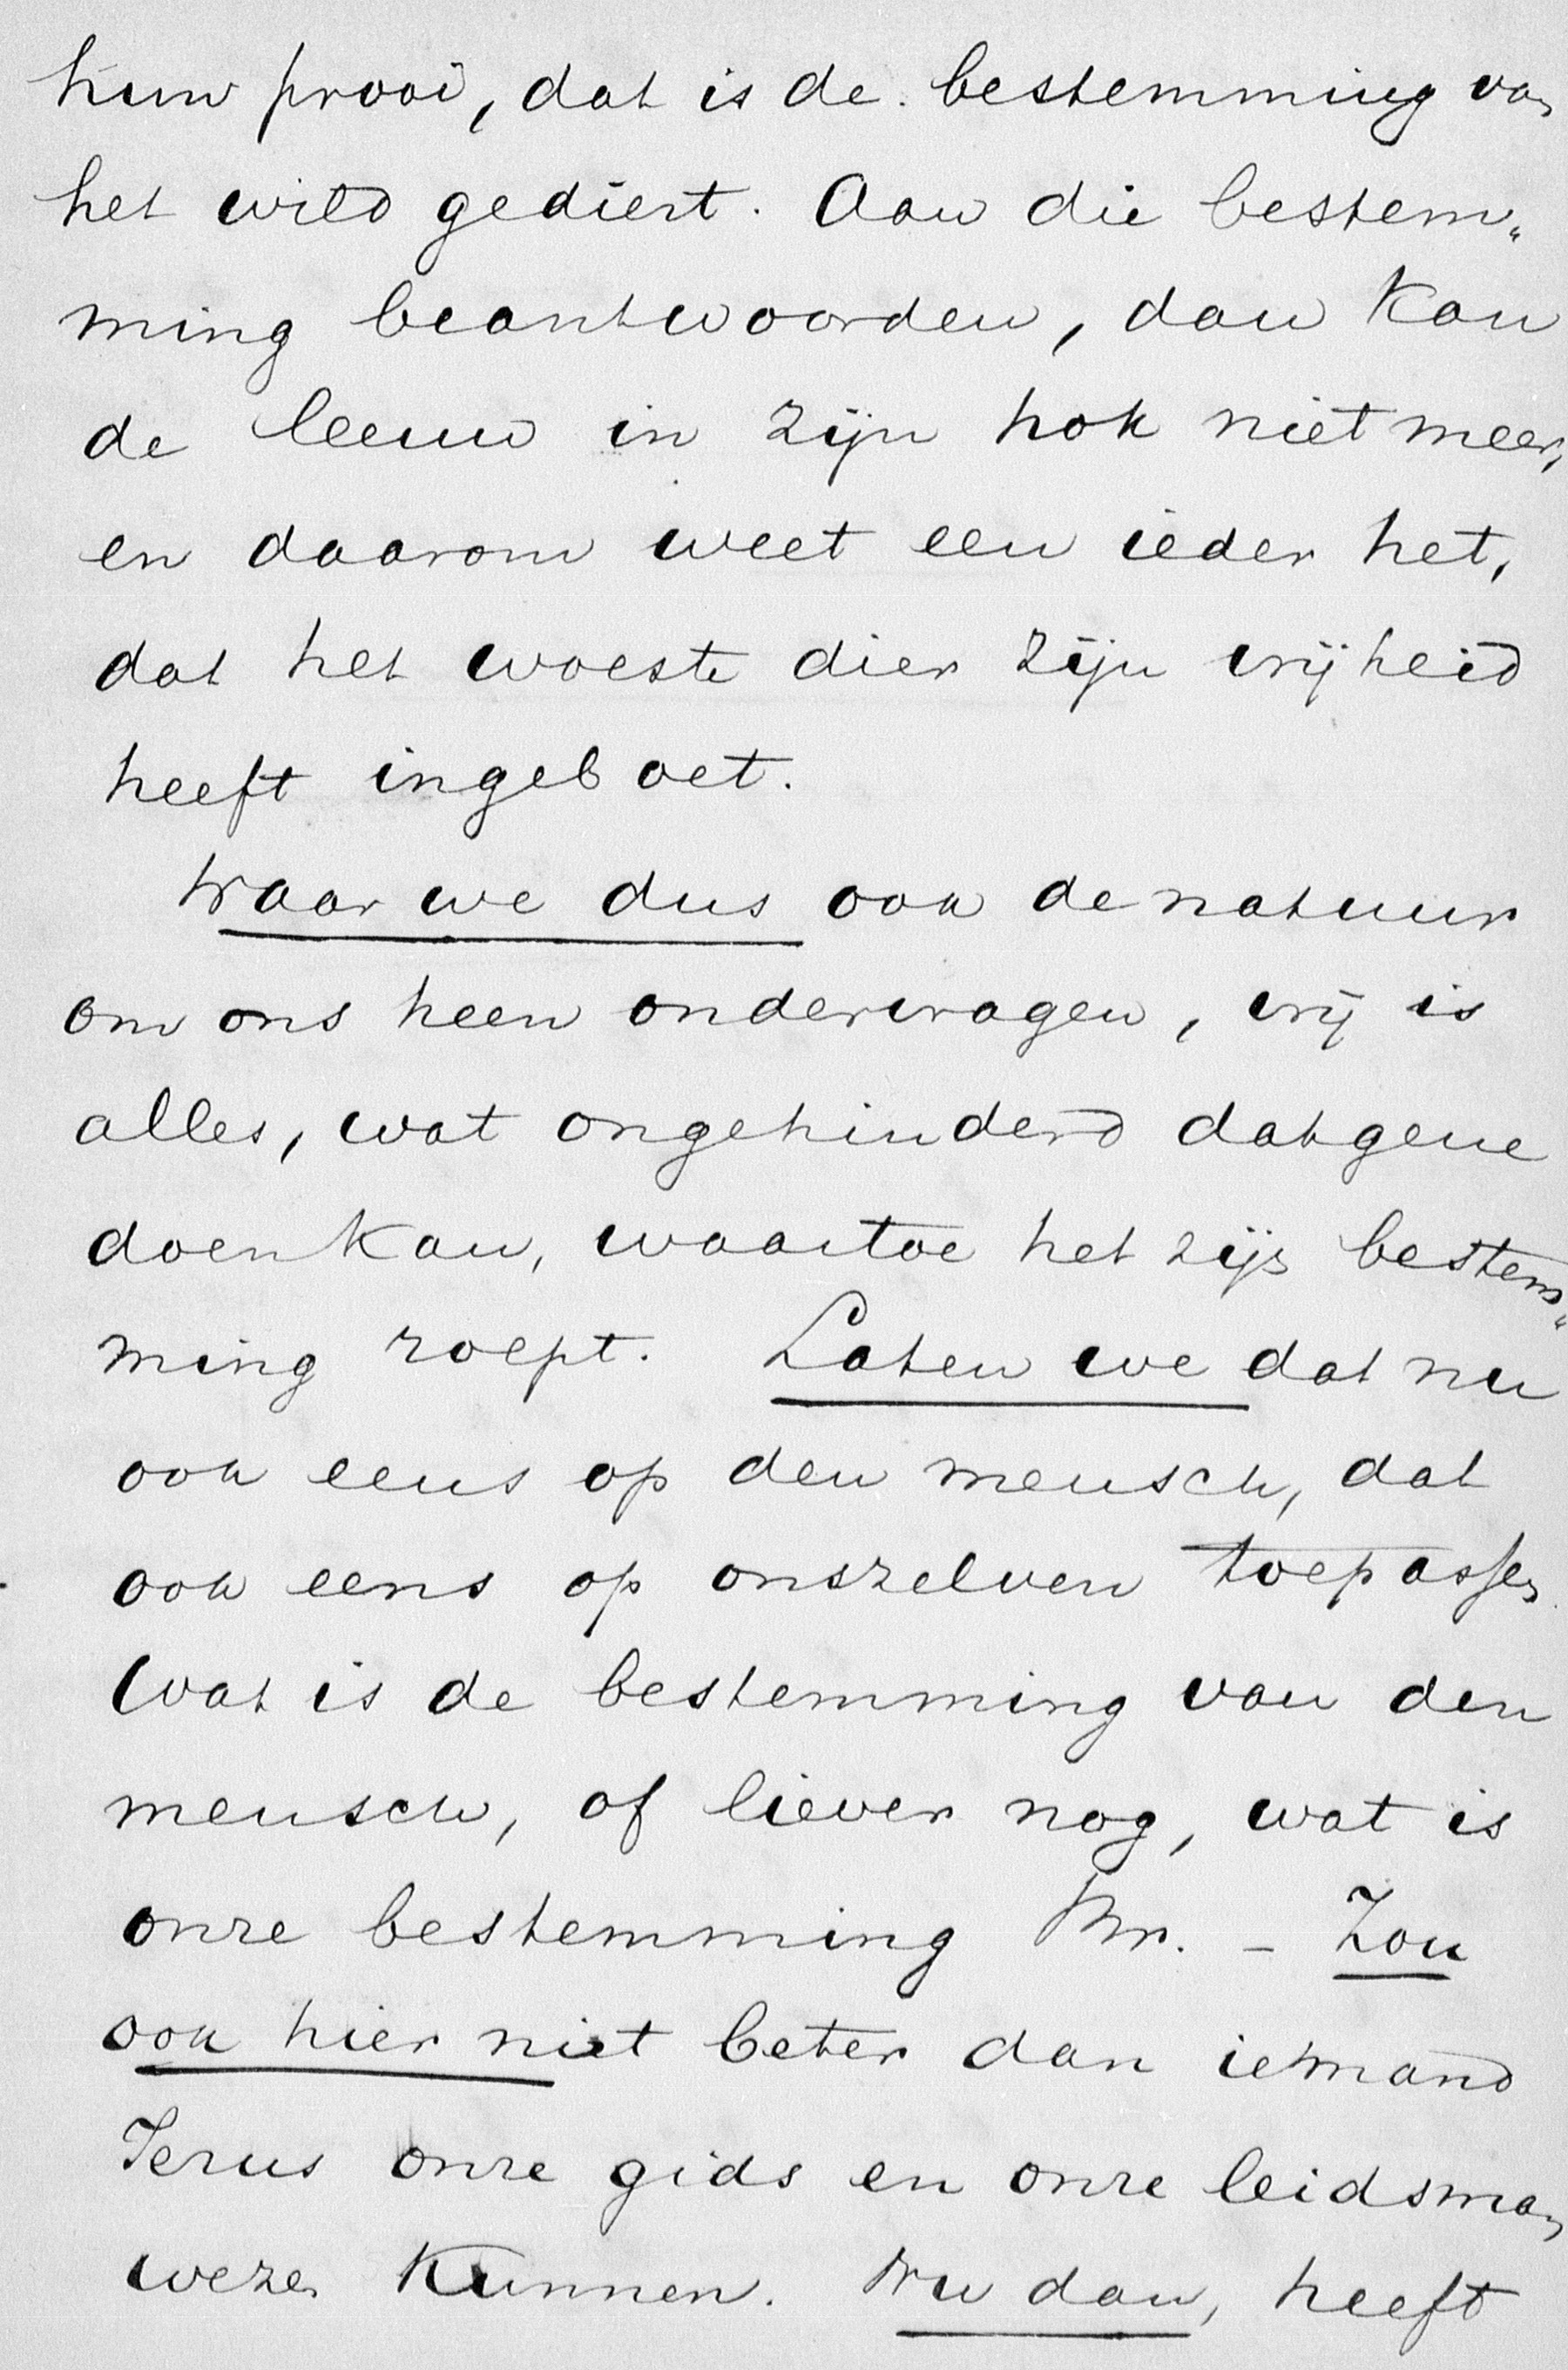 hun prooi, dat is de bestemming van
het wild gediert. Aan die bestem„
ming beantwoorden, dan kan
de leeuw in zijn hok niet meer,
en daarom weet een ieder het,
dat het woeste dier zijn vrijheid
heeft ingeboet.
Waar we dus ook de natuur
om ons heen ondervragen, vrij is
alles, wat ongehinderd datgene
doen kan, waartoe het zijn bestem„
ming roept. Laten we dat nu
ook eens op den mensch, dat
ook eens op onszelven toepassen
Wat is de bestemming van den
mensch, of liever nog, wat is
onze bestemming Br. – Zou
ook hier niet beter dan iemand
Jezus onze gids en onze leidsman
wezen kunnen. Nu dan, heeft